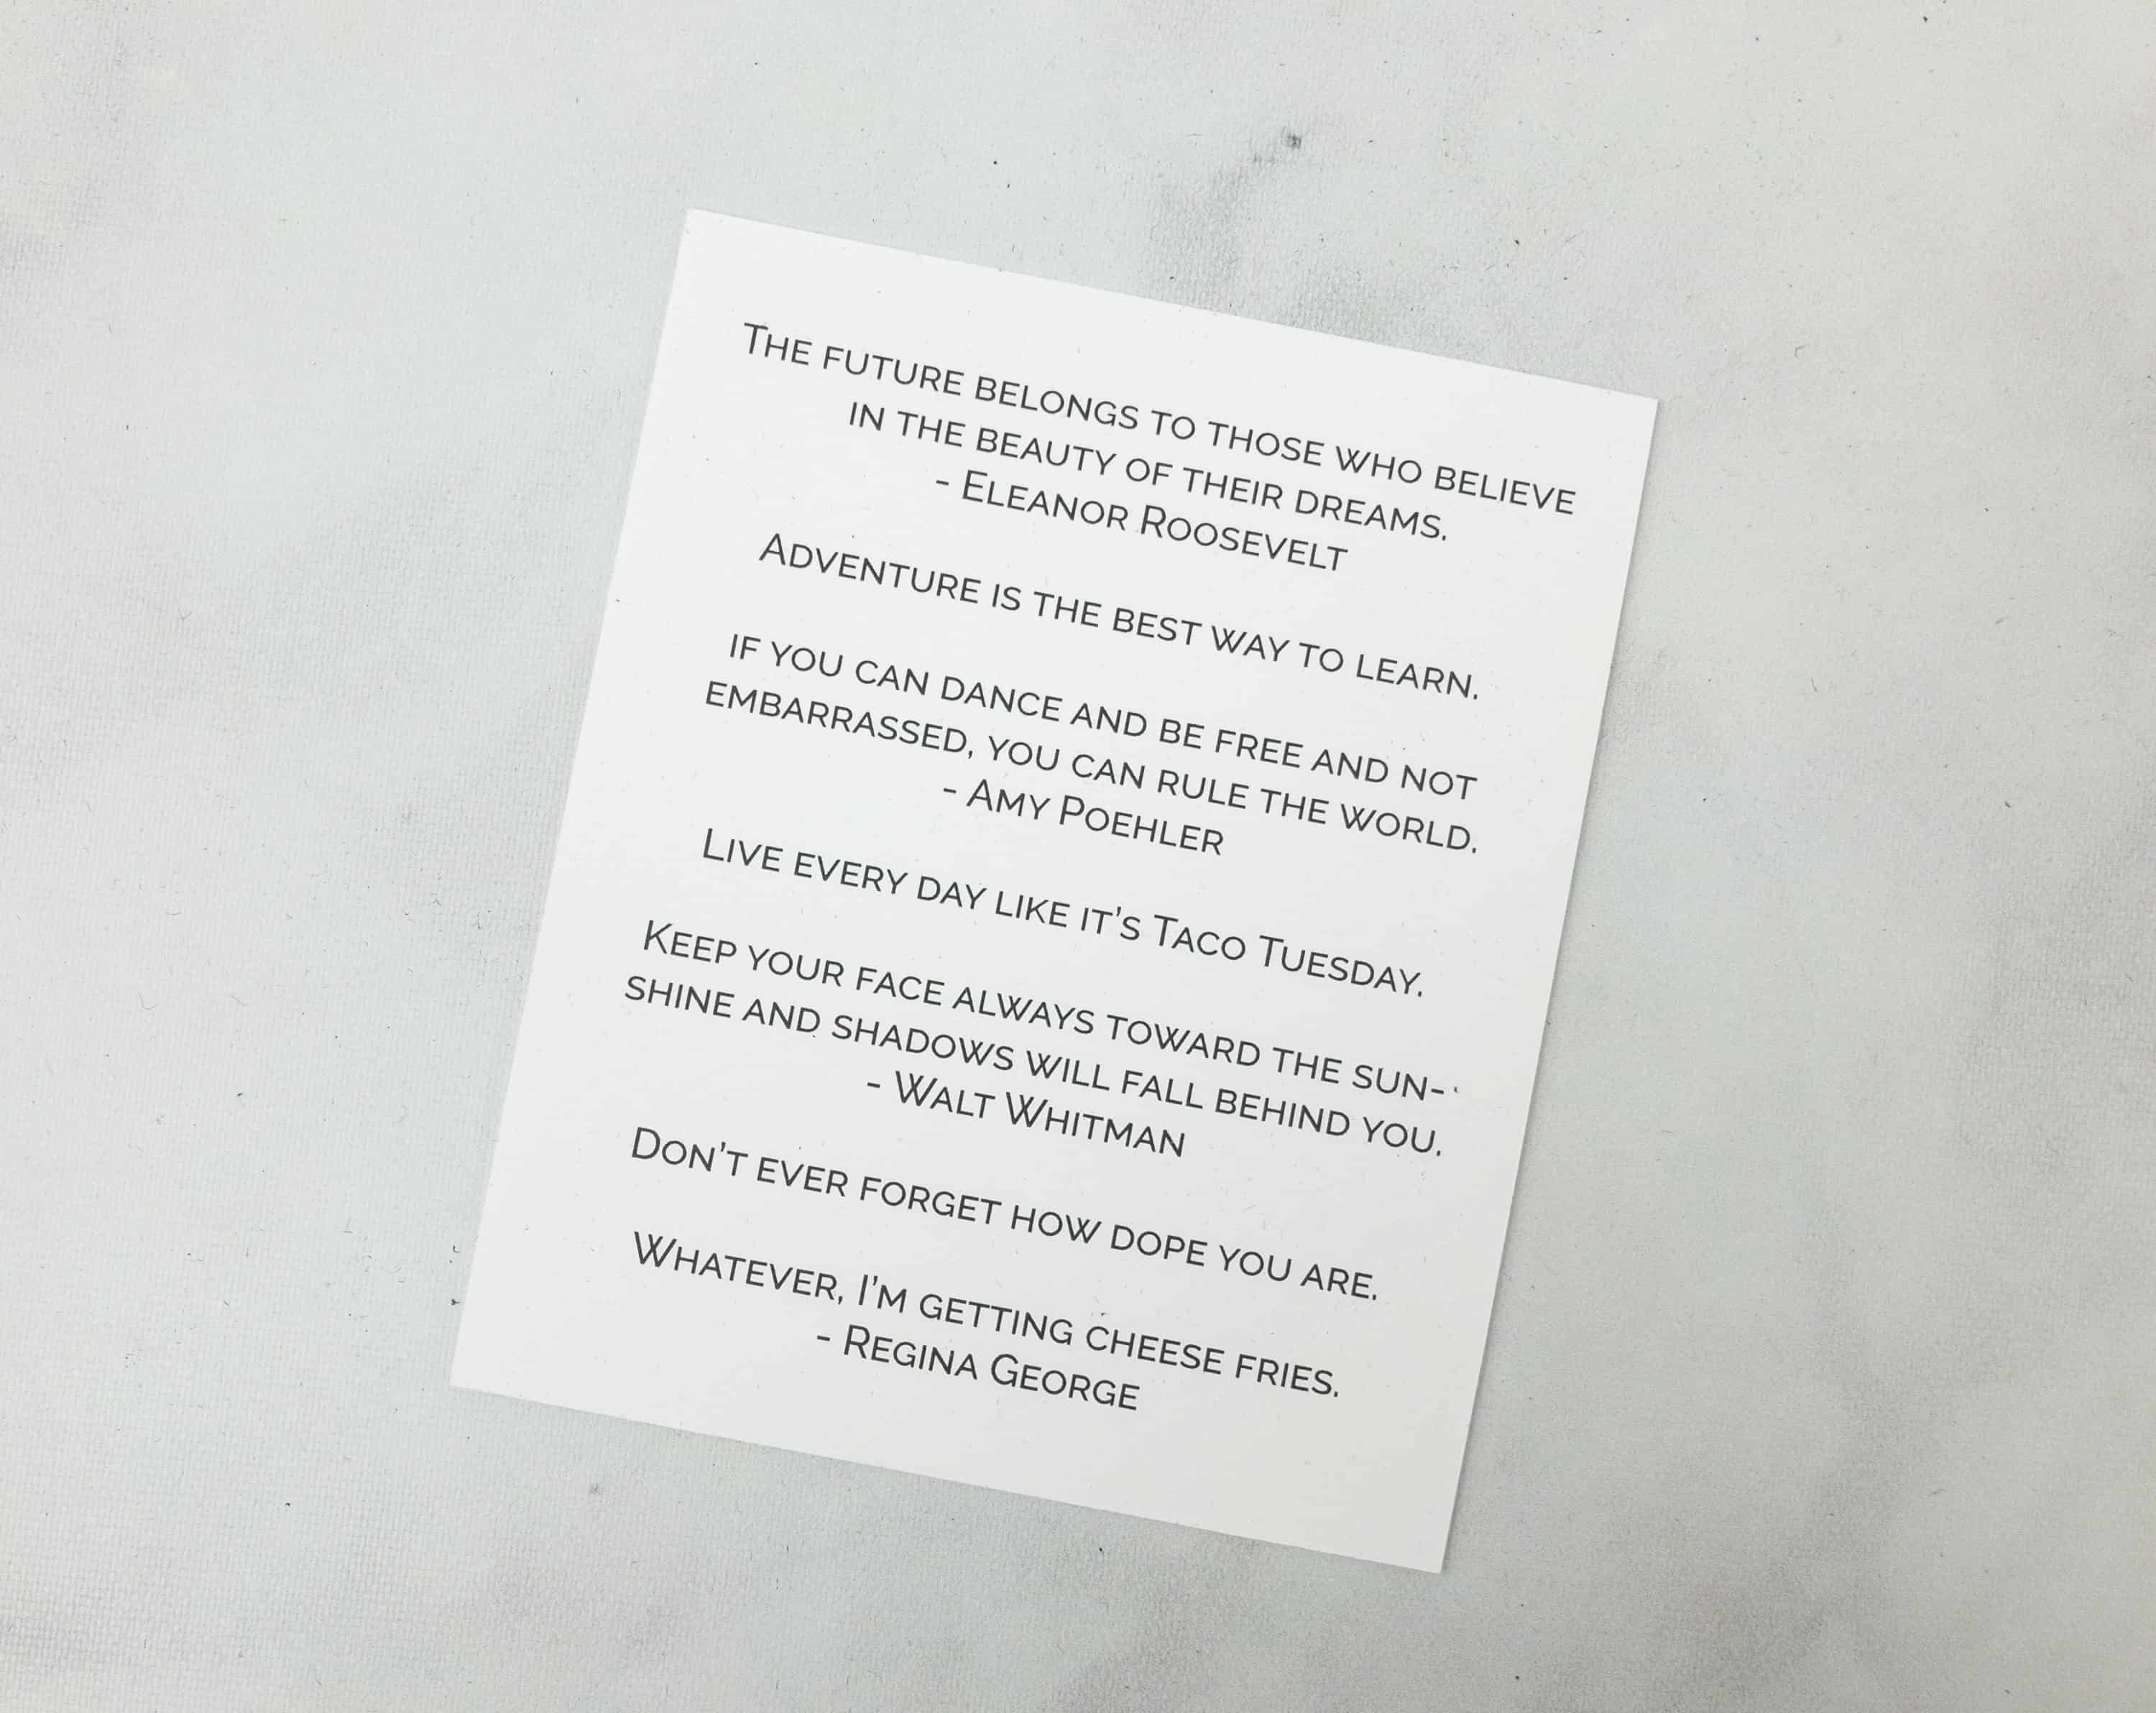 The future belongs to those who believe
in the beauty of their dreams.
- Eleanor Roosevelt
Adventure is the best way to learn.
if you can dance and be free and not
embarrassed, you can rule the world.
- Amy Poehler
Live every day like it's Taco Tuesday.
Keep your face always toward the sun-
shine and shadows will fall behind you.
- Walt Whitman
Don't ever forget how dope you are.
Whatever, I'm getting cheese fries.
- Regina George